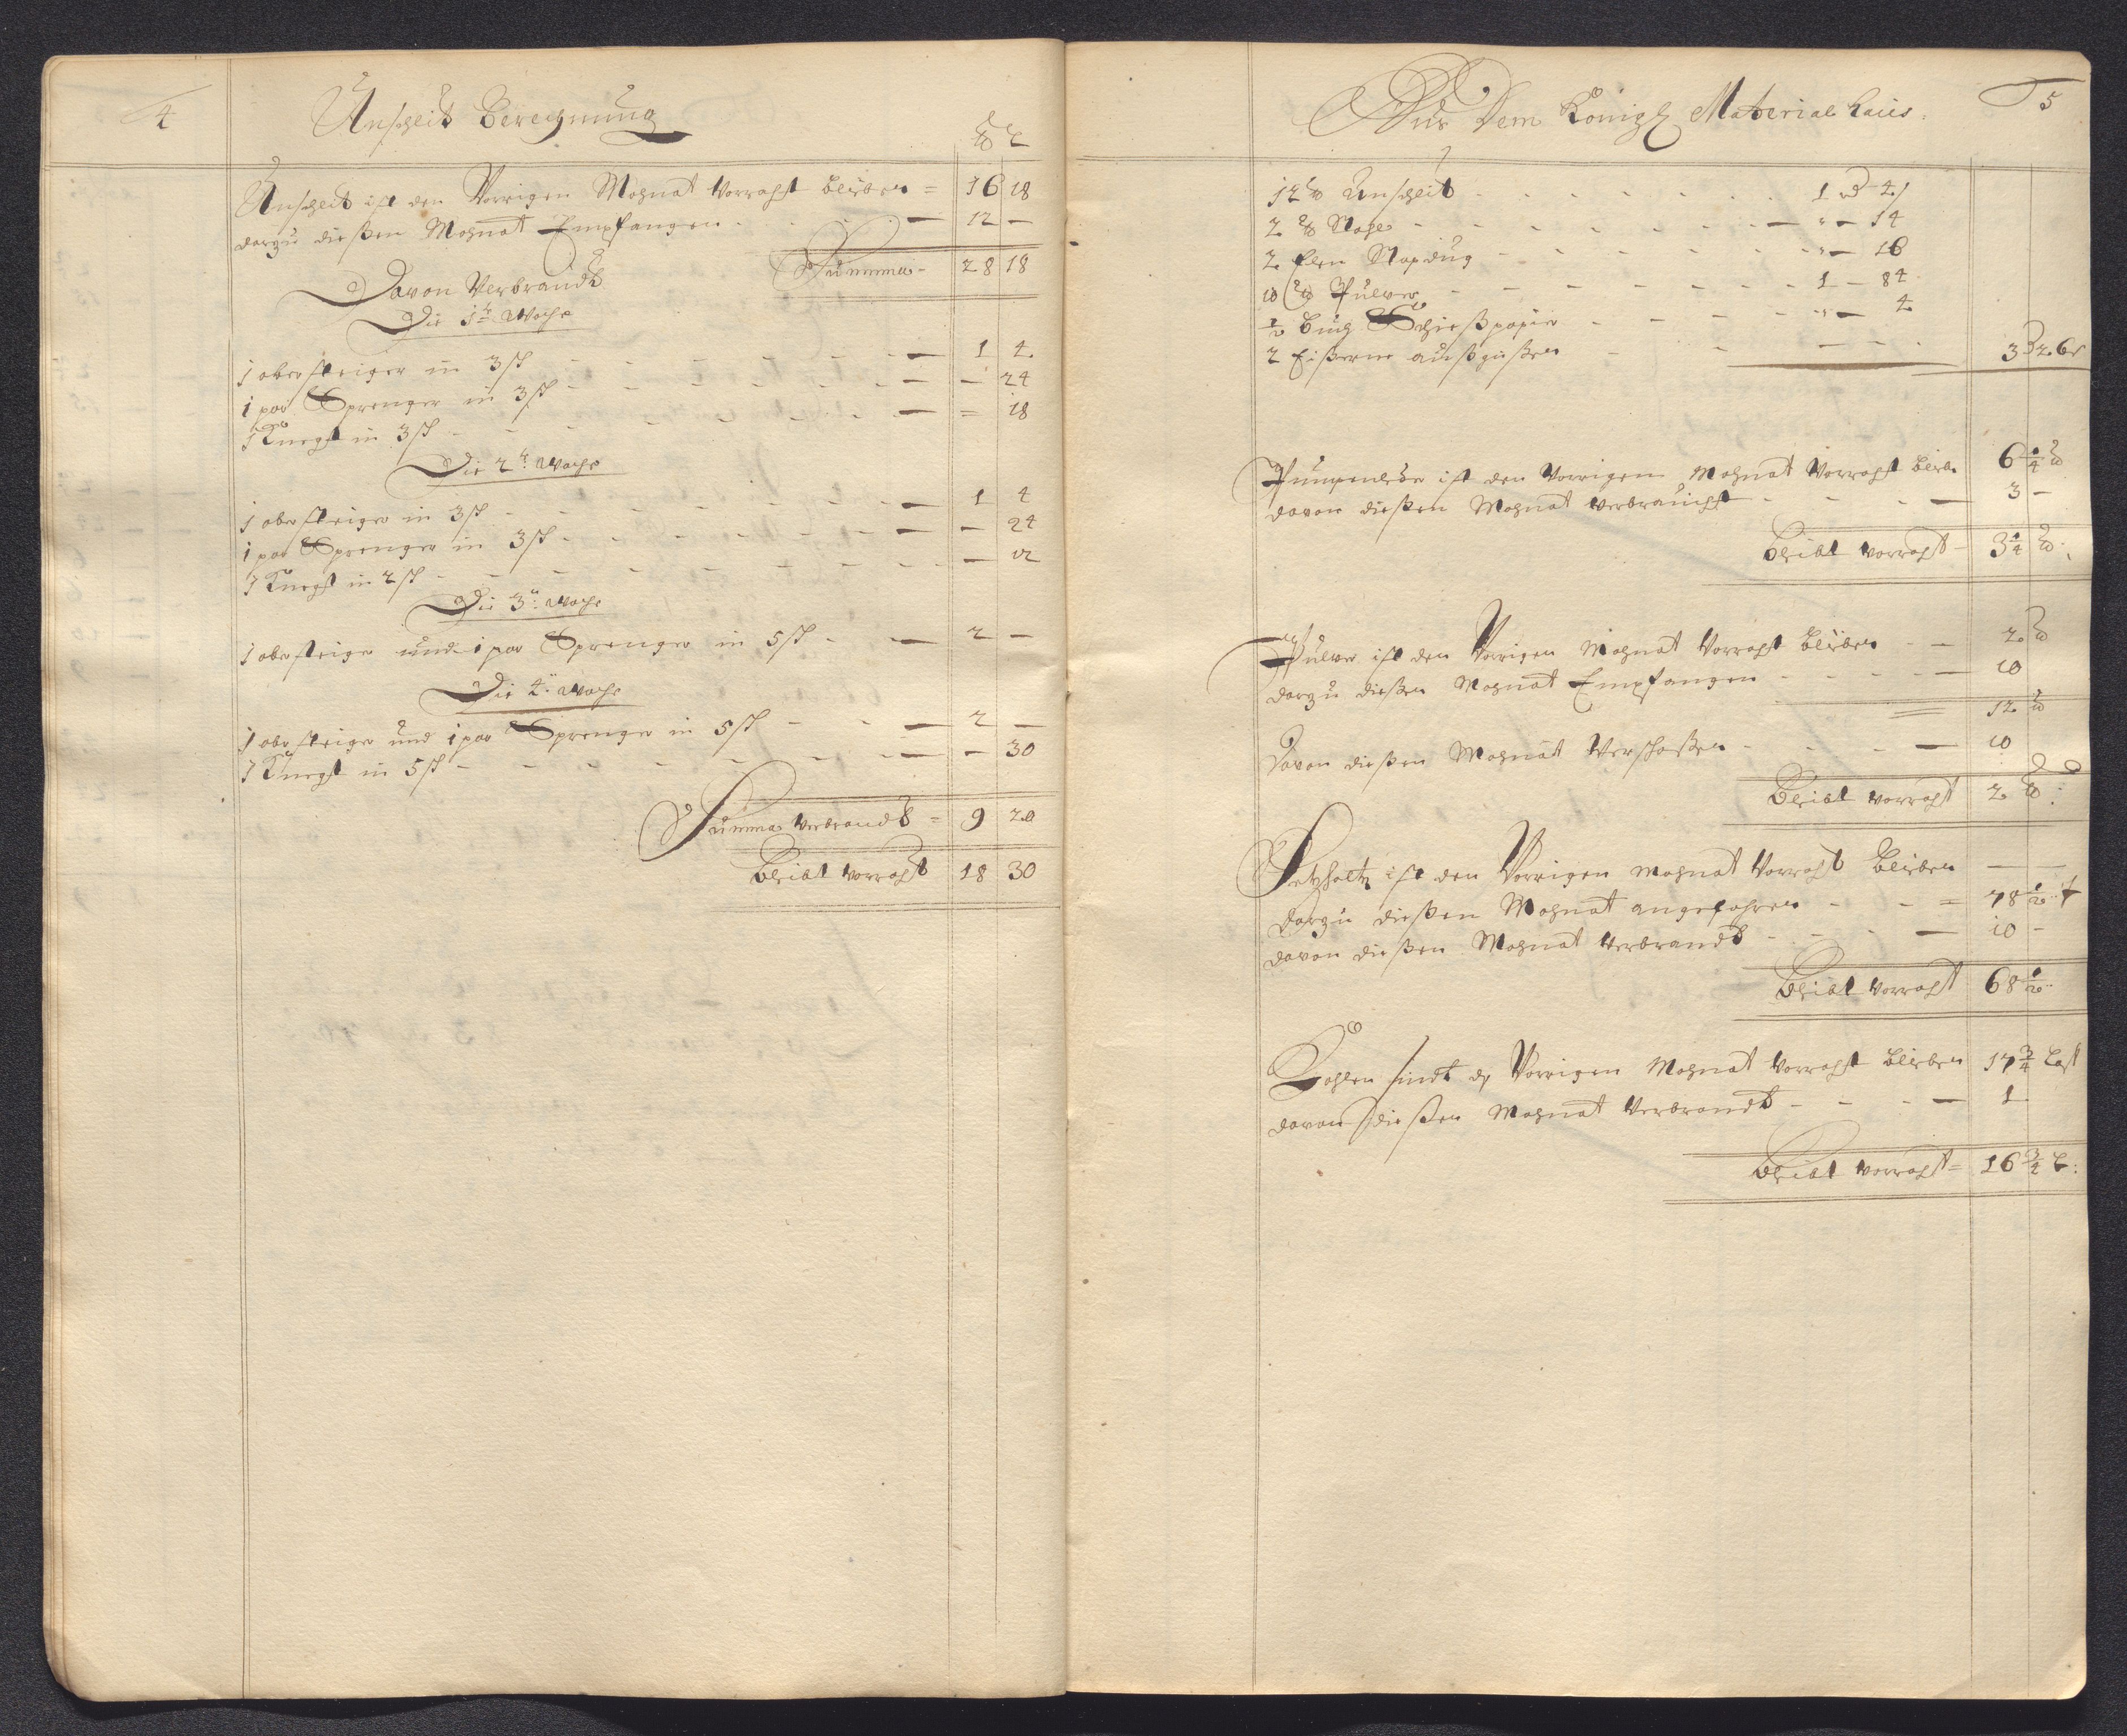 4
Unscheit Berechnung
℔ L
Unscheit ist den Vorrigen Mohnat Vorraht bliben = 16 18
darzu dießen Mohnat Empfangen - - - 12 —
Summa - 28 18
Davon Verbrandt
Die 1te Woche
1 obersteiger in 3 sch - - - 1 4
1 par Sprenger in 3 sch - - - — 24
1 Knecht in 3 sch - - - = 18
Die 2te Woche
1 obersteiger in 3 sch - - - 1 4
1 par Sprenger in 3 sch - - - — 24
1 Knecht in 2 sch - - - — 12
Die 3te Woche
1 obersteiger und 1 par Sprenger in 5 sch - - 2 —
Die 4te Woche
1 obersteiger und 1 par Sprenger in 5 sch - - 2 —
1 Knecht in 5 sch - - - — 30
Summa Verbrandt = 9 20
Bleibt Vorraht 18 30
5
Aus Dem Königl Material Haus.
12 ℔ Unscheit - - - 1 — 4
2 ℔ - - - " — 14
2 Elen - - - " — 16
10 ℔ Pulver - - - 1 — 84
½ Buch Schießpapir - - - " — 4
2 Eißerne - - - 3 26
ist den Vorrigen Mohnat Vorraht blib 6 ¼ ℔
davon dießen Mohnat Verbraucht - - - 3 —
Bleibt Vorraht - 3 ¼ ℔
Pulver ist den Vorrigen Mohnat Vorraht bliben - - 2 ℔
darzu dießen Mohnat Empfangen - - - 10
12 ℔
Davon dießen Mohnat Verschoßen - - - 10
Bleibt Vorraht 2 ℔
Setzholtz ist den Vorrigen Mohnat Vorraht bliben — —
darzu dießen Mohnat angefahren - - = 78 ½ f
davon dießen Mohnat Verbrandt - - - 10 -
Bleibt Vorraht 68 ½
Kohlen sindt den Vorrigen Mohnat Vorraht bliben 17 ¾ Last
davon dießen Mohnat Verbrandt - - - 1
Bleibt Vorraht = 16 ¾ L: